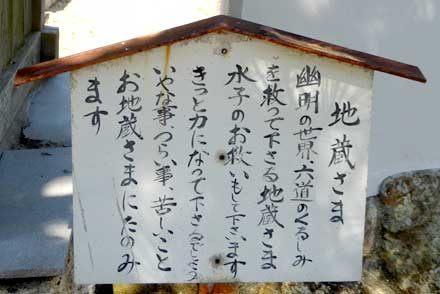 地蔵さま
幽明の世界六道のくるしみ
を救って下さる地蔵さま
水子のお救いもして下さいます
きっと力になって下さるでしょう
いやな事、つらい事、苦しいこと
お地蔵さまにたのみ
ます